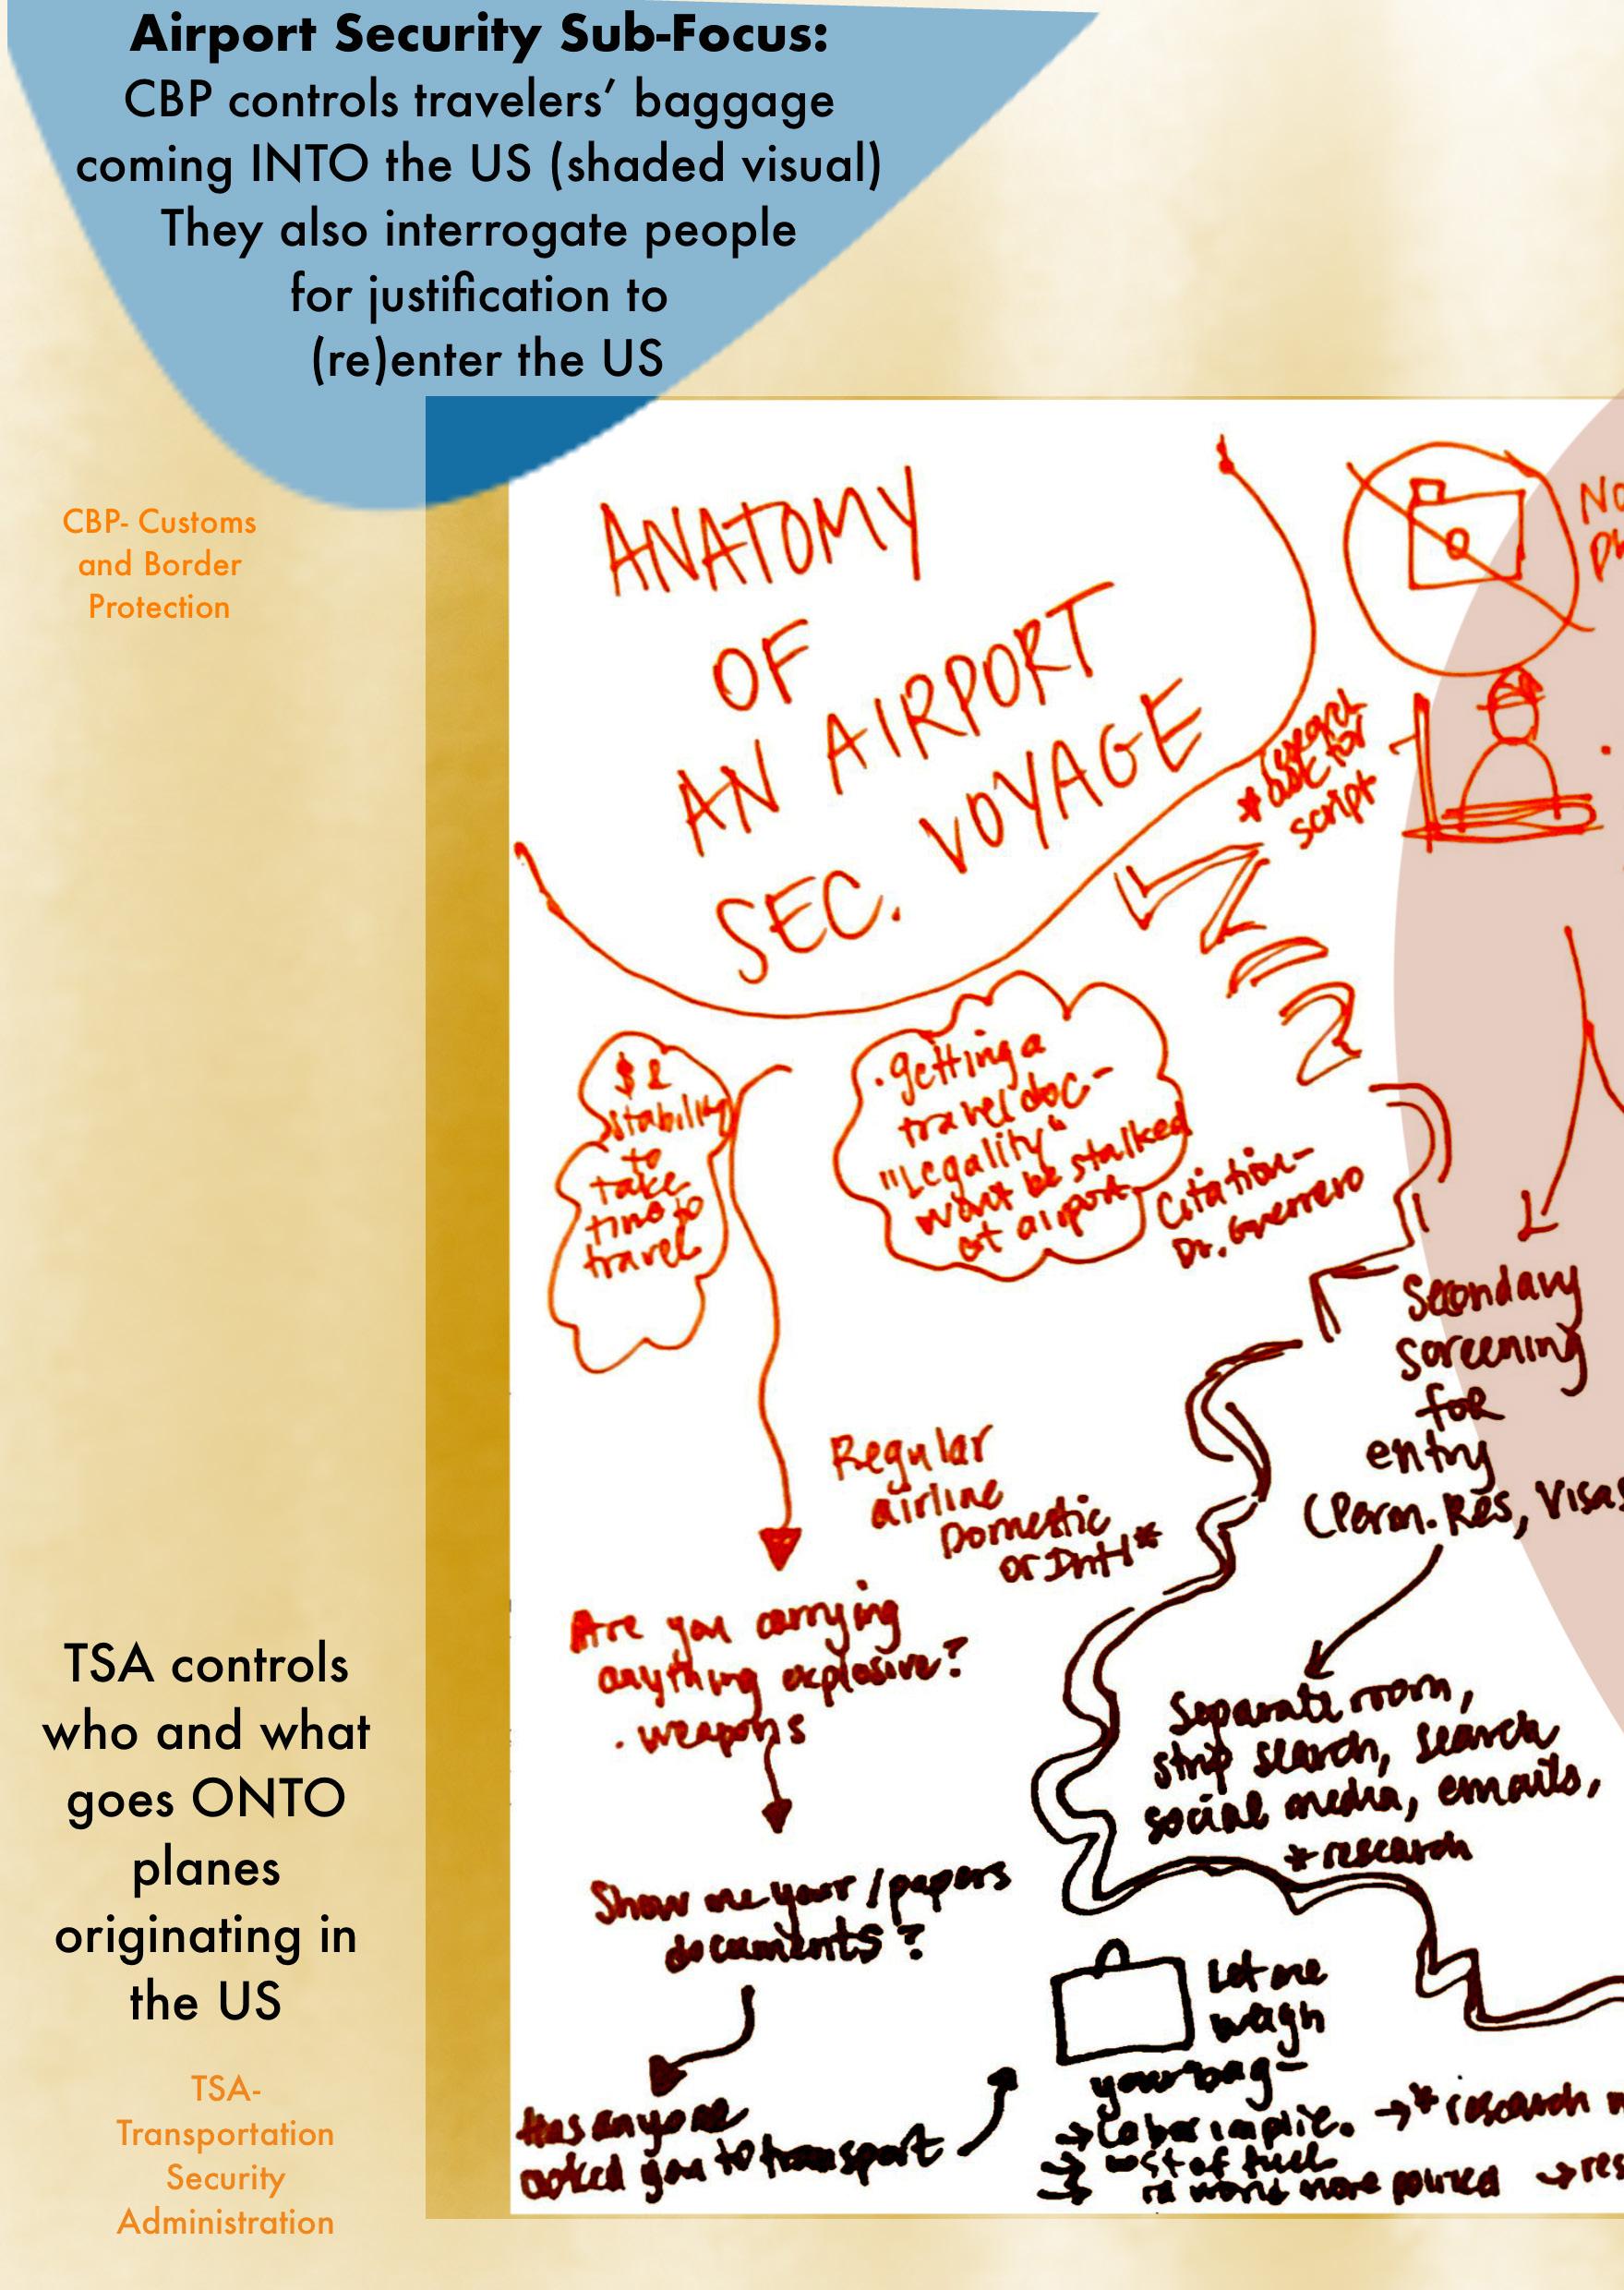 Airport Security Sub-Focus:
CBP controls travelers’ baggage
coming INTO the US (shaded visual)
They also interrogate people
for justification to
(re)enter the US
CBP- Customs
and Border
Protection
ANATOMY
OF
AN AIRPORT
SEC. VOYAGE
NO
* ask for
script
$ &
stability
to
take
time to
travel
. getting a
travel doc-
"Legality"
won't be stalked
at airport
Citation-
Dr. Guerrero
Secondary
screening
for
entry
(Perm. Res, Visas
Regular
airline
Domestic
or Int'l*
Are you carrying
anything explosive?
. weapons
Separate room,
strip search, search
social media, emails,
* research
Show me your / papers
documents?
Let me
weigh
your bag-
→ Labor implic. → * research
→ cost of fuel
more
Has anyone
asked you to transport
TSA controls
who and what
goes ONTO
planes
originating in
the US
TSA-
Transportation
Security
Administration